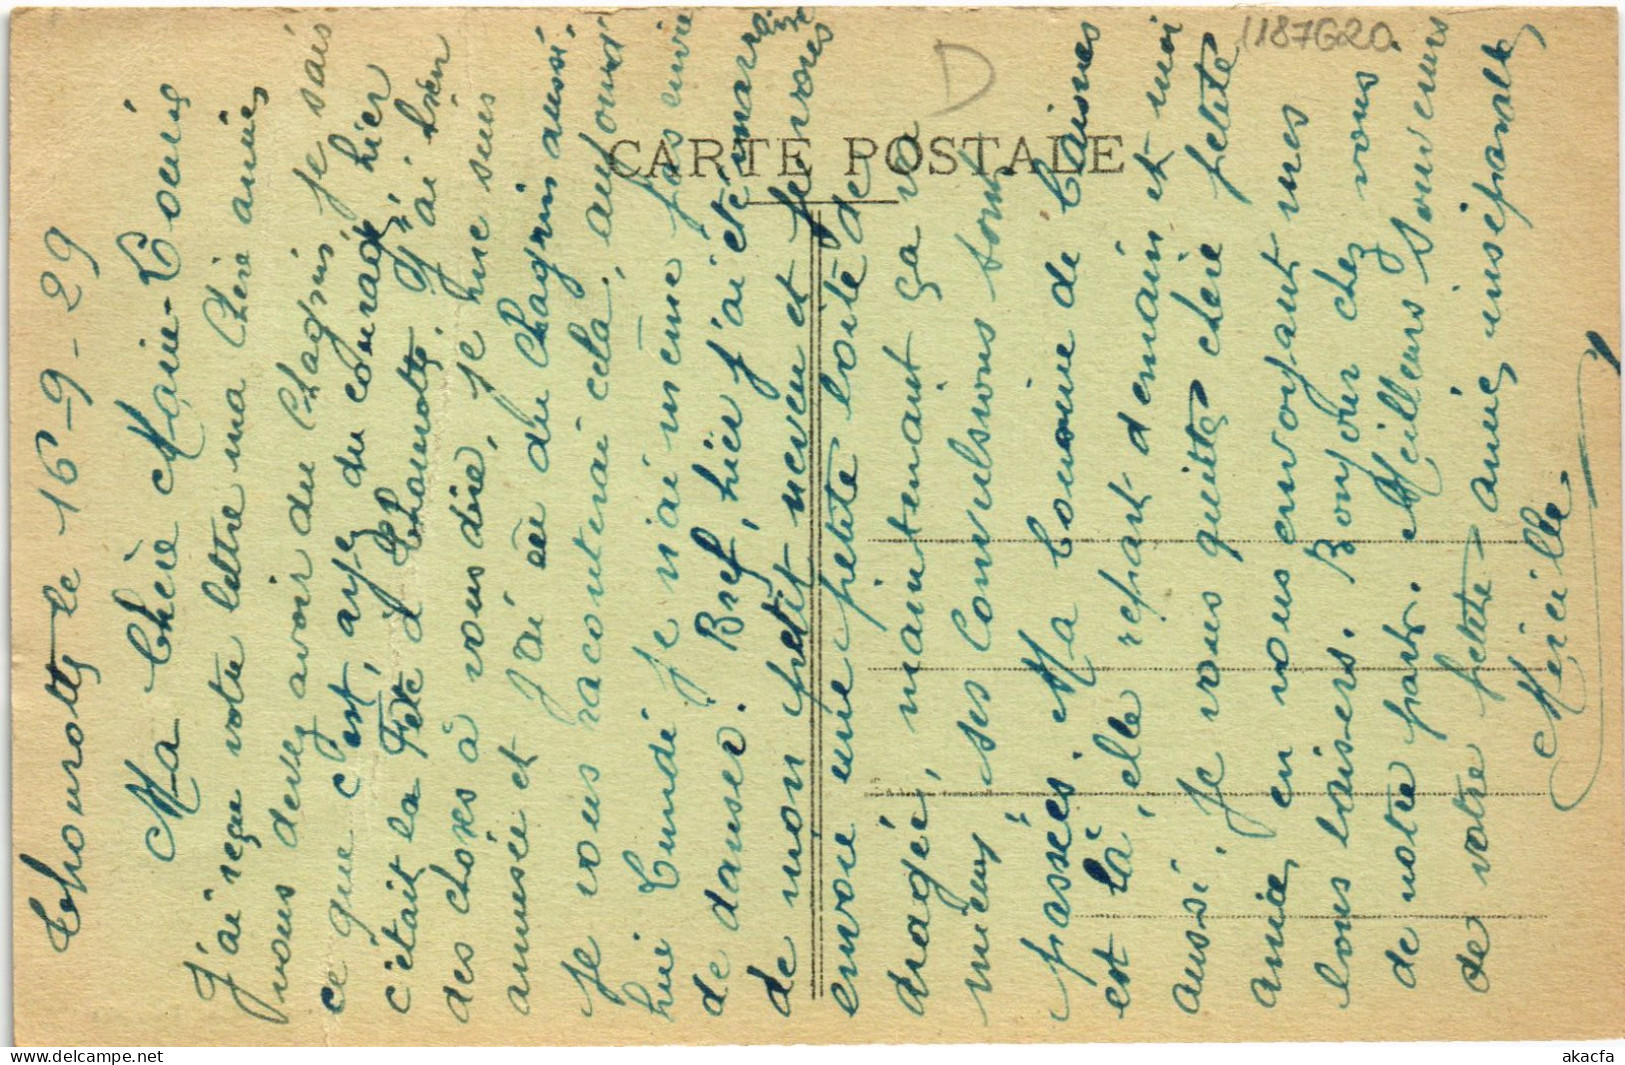 Thourotte le 16-9-29
Ma Chère Marie-Louise
J'ai reçu votre lettre ma Chère amie,
vous devez avoir du Chagrin, je sais
ce que c'est, ayez du courage, hier
c'était la Fête à Thourotte. J'ai bien
des choses à vous dire, je me suis
amusée et j'ai eu du Chagrin aussi.
Je vous raconterai cela, aujourd'
hui Lundi je n'ai même pas envie
de danser. Bref, hier j'ai été marraine
de mon petit neveu et je vous
envoie une petite boîte de
dragée, maintenant ça va
mieux, ses Convulsions sont
passées. Ma Cousine de
est là, elle repart demain et moi
aussi. Je vous quitte chère petite
amie, en vous envoyant mes
bons baisers. Bonjour chez vous
de notre part. Meilleurs Souvenirs
de votre petite amie inséparable
CARTE POSTALE
D
akacfa